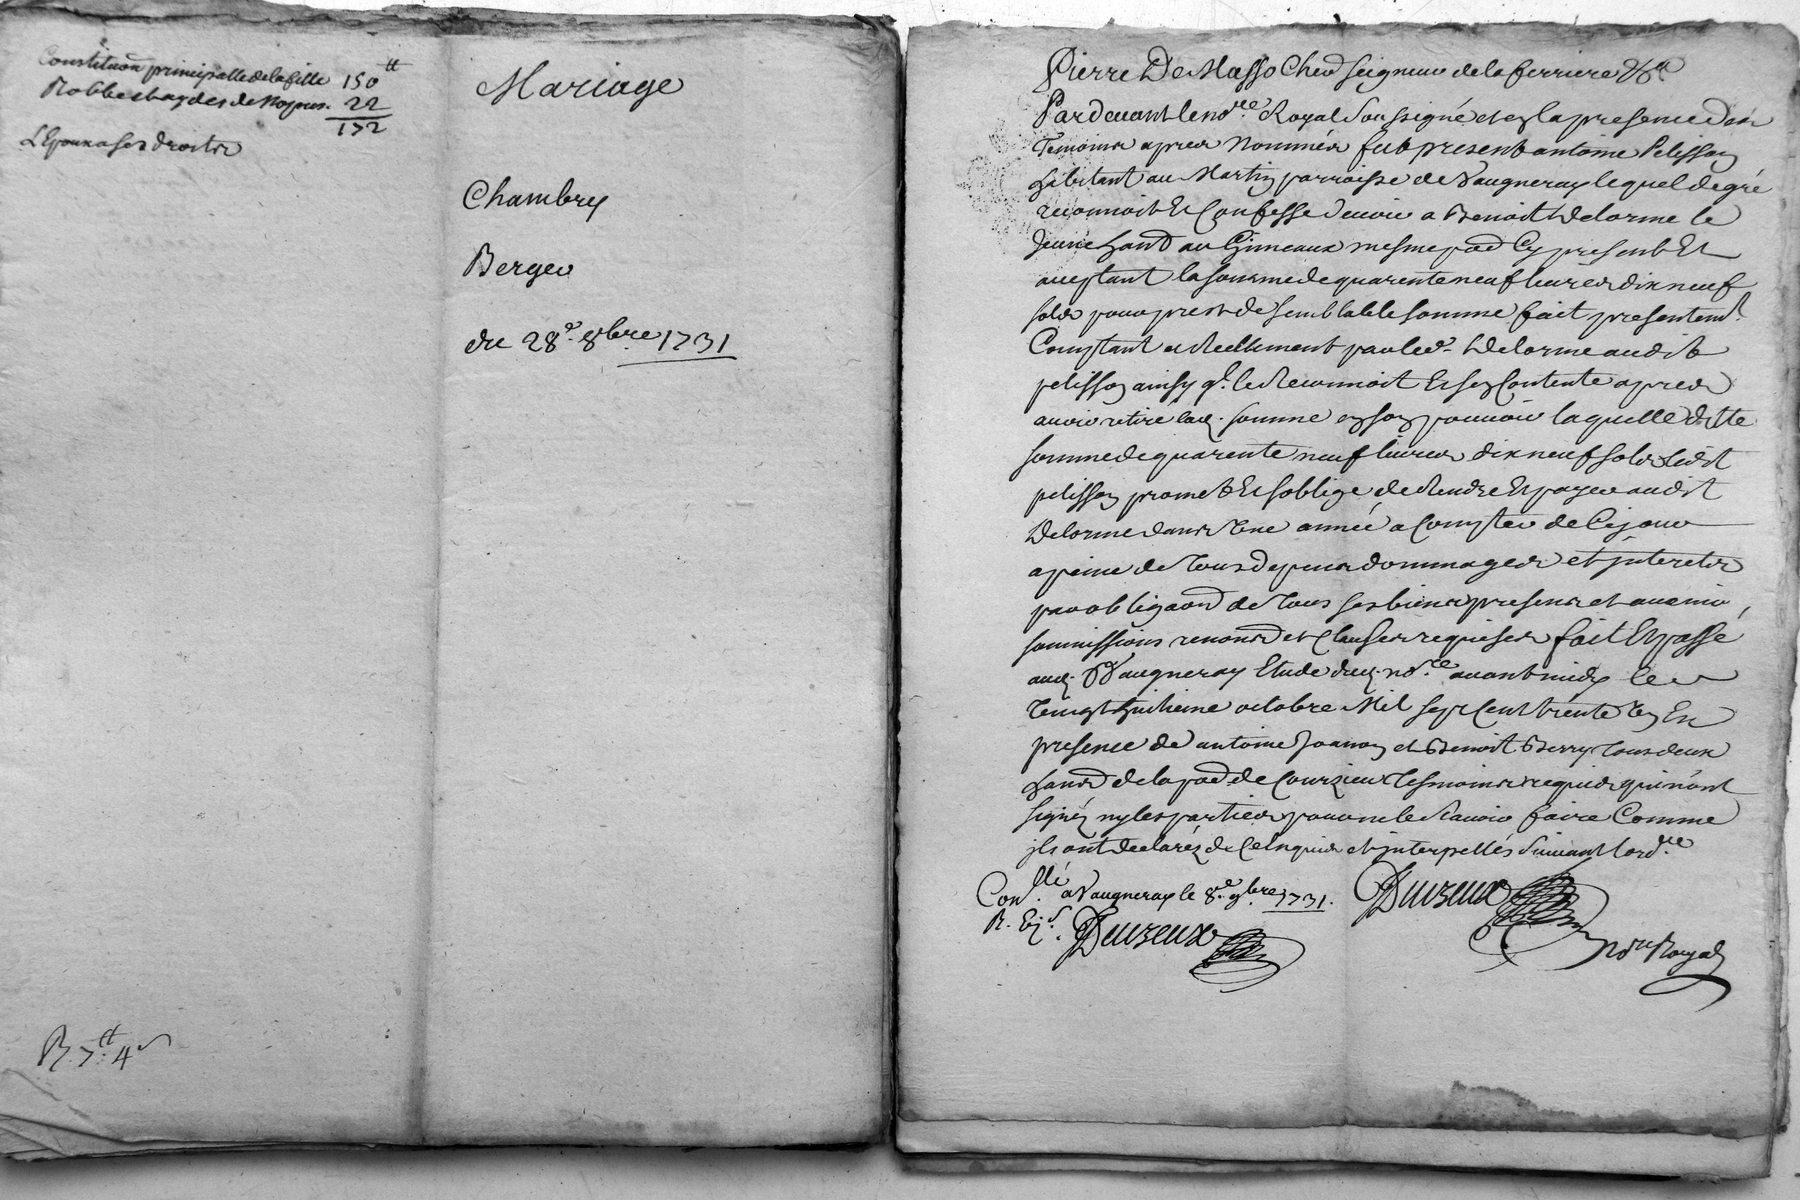 Constituaon principalle de la fille 150 tt
Robbes hardes de Nopces. 22
172
L'Epoux a ses droits
Mariage
Chambry
Berger
du 28e. 8bre 1731
R. 7 tt. 4 s
Pierre De Masso Cher seigneur de la ferriere &c
Pardevant le nore Royal soussigné et en la presence des
Temoins apres Nommés fut present antoine Pelisson
habitant au Martin parroisse de Vaugneray lequel de gré
reconnoit Et Confesse devoir a Benoit Delorme le
Jeune habnt au mesme pad Cy present Et
aceptant la somme de quarente neuf livres dix neuf
sols pour prest de semblable somme fait presentemt.
Comptant et Reellement par led. Delorme audit
pelisson ainsy ql. le Reconnoit Et s'en Contente apres
avoir retiré lad. somme en son pouvoir laquelle ditte
somme de quarente neuf livres dix neuf sols ledit
pelisson promet Et s'oblige de Rendre Et payer audit
Delorme dans Une année a Compter de Ce jour
a peine de Tous depens dommages et interets
par obligaon de Tous ses biens presens et avenir,
soumissions renonons et Clauses requises fait Et passé
aud. Vaugneray Etude dud. nore avant midy le
Vingt huitieme octobre Mil sept Cent trente Un En
presence de antoine Joanon et Benoit Berry Tous deux
habns de la pad de Courzieu Tesmoins requis qui n'ont
signés ny les parties pour ne le sCavoir faire Comme
ils ont declarés de Ce Enquis et interpellés suivant l'ordce
Conllé a Vaugneray le 8e. 9bre 1731.
R. Six s. Duvzeux
Duvzeux
Nore Royal